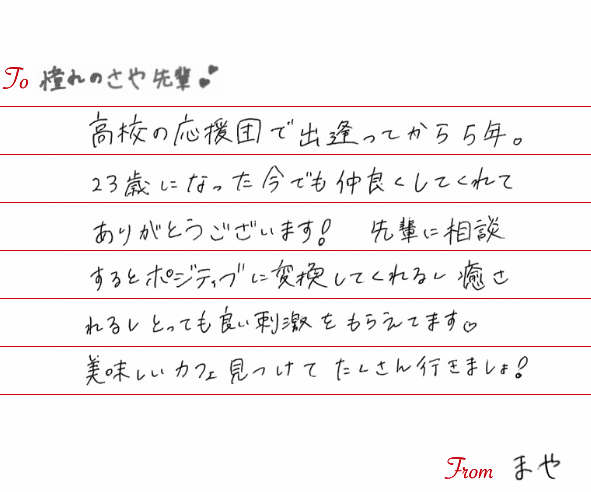 To 憧れのさや先輩💕
高校の応援団で出逢ってから5年。
23歳になった今でも仲良くしてくれて
ありがとうございます! 先輩に相談
するとポジティブに変換してくれるし癒さ
れるしとっても良い刺激をもらえてます♡
美味しいカフェ見つけてたくさん行きましょ!
From まや